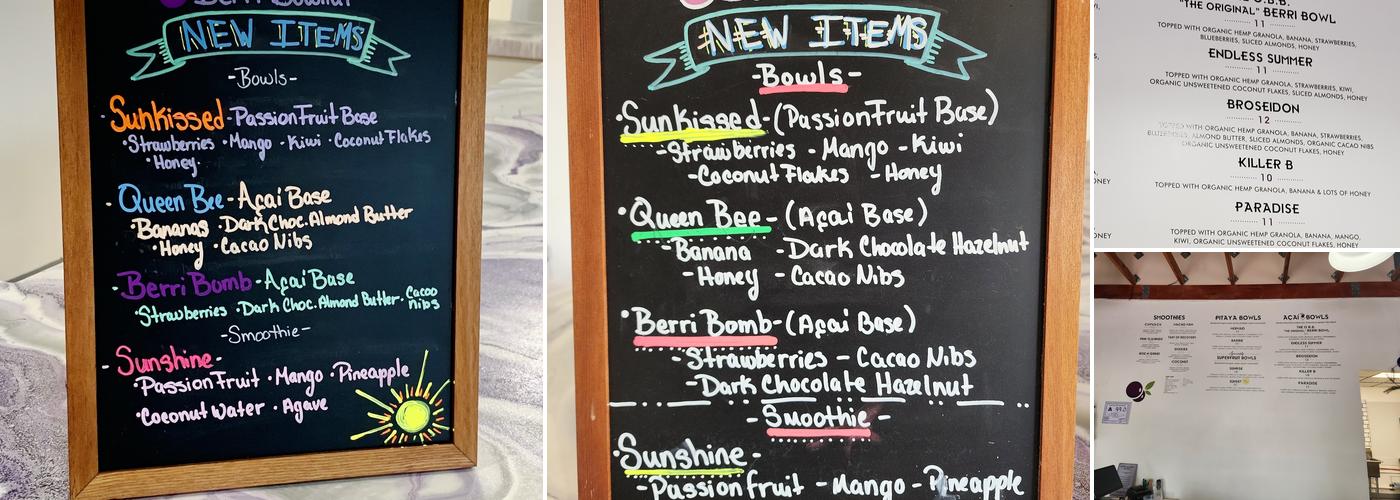 Berri Bowlful
NEW ITEMS
-Bowls-
·Sunkissed-PassionFruit Base
·Strawberries ·Mango ·Kiwi ·Coconut Flakes
·Honey·
·Queen Bee-Açai Base
·Bananas ·Dark Choc. Almond Butter
·Honey ·Cacao Nibs
·Berri Bomb-Açai Base
·Strawberries ·Dark Choc. Almond Butter· Cacao Nibs
-Smoothie-
-Sunshine-
·PassionFruit ·Mango ·Pineapple
·Coconut Water ·Agave
NEW ITEMS
-Bowls-
·Sunkissed-(PassionFruit Base)
-Strawberries -Mango -Kiwi
-Coconut Flakes -Honey
·Queen Bee-(Açai Base)
-Banana -Dark Chocolate Hazelnut
-Honey -Cacao Nibs
·Berri Bomb-(Açai Base)
-Strawberries -Cacao Nibs
-Dark Chocolate Hazelnut
-Smoothie-
·Sunshine-
-Passion fruit -Mango -Pineapple
"THE ORIGINAL" BERRI BOWL
11
TOPPED WITH ORGANIC HEMP GRANOLA, BANANA, STRAWBERRIES,
BLUEBERRIES, SLICED ALMONDS, HONEY
ENDLESS SUMMER
11
TOPPED WITH ORGANIC HEMP GRANOLA, STRAWBERRIES, KIWI,
ORGANIC UNSWEETENED COCONUT FLAKES, SLICED ALMONDS, HONEY
BROSEIDON
12
TOPPED WITH ORGANIC HEMP GRANOLA, BANANA, STRAWBERRIES,
BLUEBERRIES, ALMOND BUTTER, SLICED ALMONDS, ORGANIC CACAO NIBS
ORGANIC UNSWEETENED COCONUT FLAKES, HONEY
KILLER B
10
TOPPED WITH ORGANIC HEMP GRANOLA, BANANA & LOTS OF HONEY
PARADISE
11
TOPPED WITH ORGANIC HEMP GRANOLA, BANANA, MANGO,
KIWI, ORGANIC UNSWEETENED COCONUT FLAKES, HONEY
SMOOTHIES
PITAYA BOWLS
AÇAI BOWLS
SUPERFRUIT BOWLS
ENDLESS SUMMER
BROSEIDON
KILLER B
PARADISE